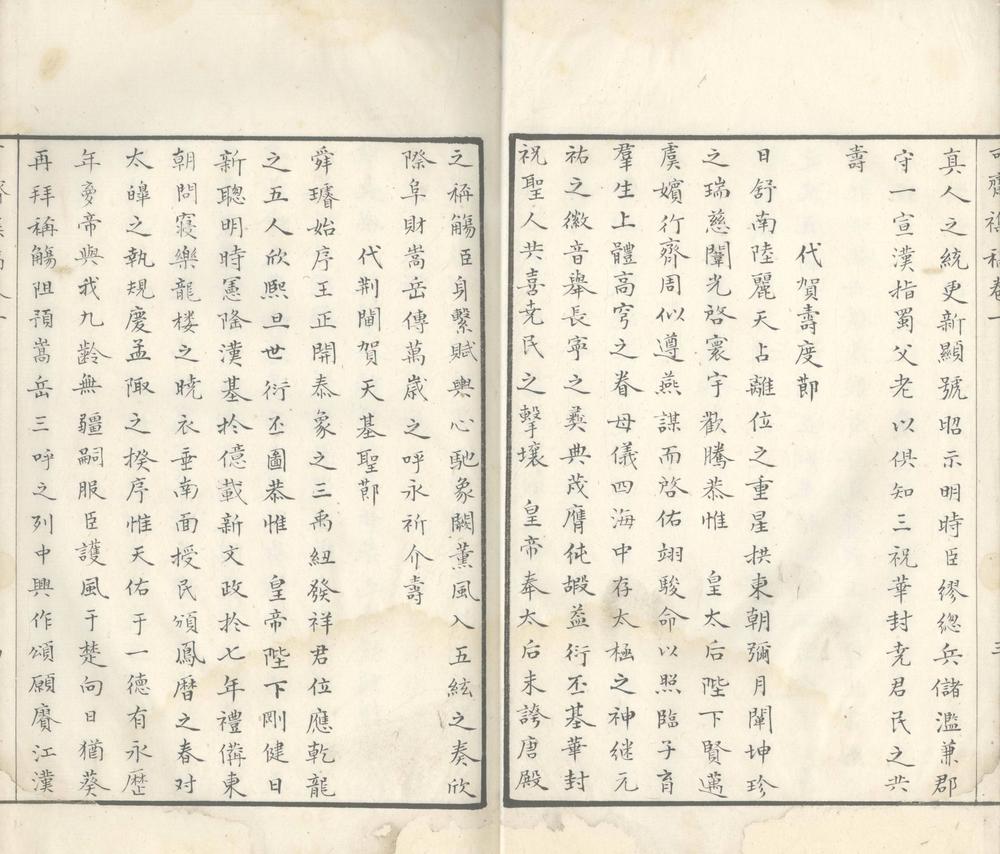 可齋續稿卷一 三
真人之統更新顯號昭示明時臣繆總兵儲濫兼郡
守一宣漢指蜀父老以俱知三祝華封堯君民之共
壽
代賀壽度節
日舒南陸麗天占離位之重星拱東朝彌月闡坤珍
之瑞慈闈光啓寰宇歡騰恭惟 皇太后陛下賢邁
虞嬪行齊周姒遵燕謀而啓佑翊駿命以照臨子育
羣生上體高穹之眷母儀四海中存太極之神继元
祐之徽音舉長寧之彞典茂膺純嘏益衍丕基華封
祝聖人共喜堯民之擊壤 皇帝奉太后未誇唐殿
之稱觴臣身繫賦輿心馳象闕薰風入五絃之奏欣
際阜財嵩岳傳萬歲之呼永祈介壽
代荆閫賀天基聖節
舜璿始序王正開泰象之三禹紐發祥君位應乾龍
之五人欣熙旦世衍丕圖恭惟 皇帝陛下剛健日
新聰明時憲隆漢基於億載新文政於七年禮備東
朝問寢樂龍楼之曉衣垂南面授民頒鳳曆之春对
太皡之執規慶孟陬之揆序惟天佑于一德有永歷
年夢帝與我九齡無疆嗣服臣護風于楚向日猶葵
再拜稱觴阻預嵩岳三呼之列中興作頌願賡江漢